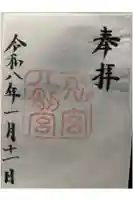 奉拝
八剱宮
令和八年一月十一日